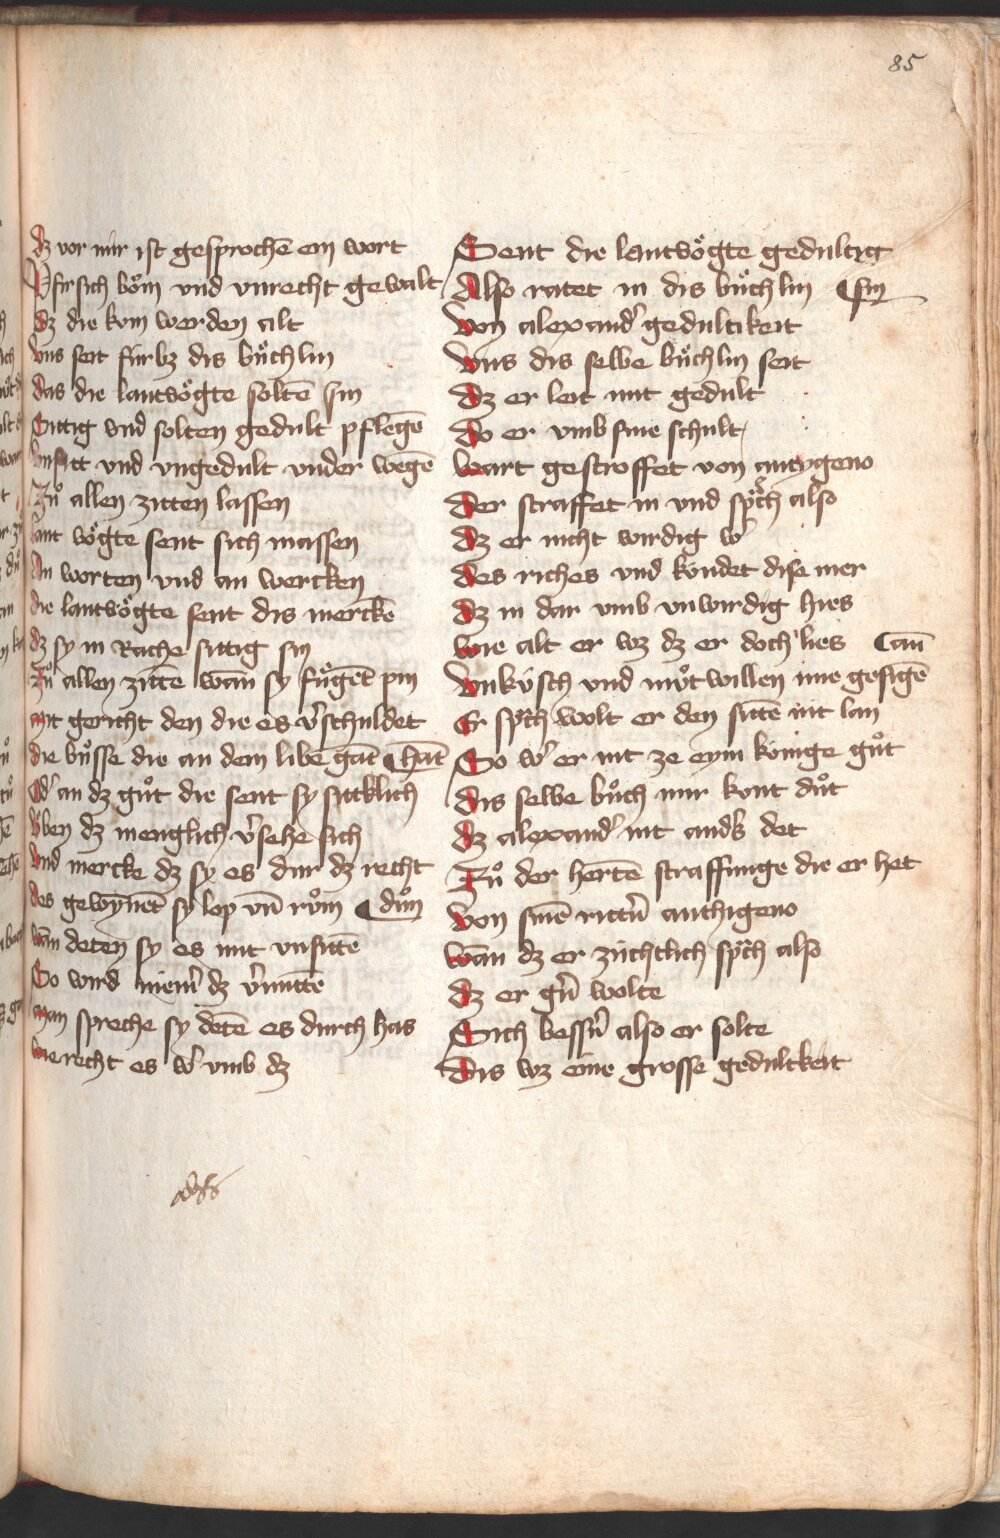 85
dz vor mir ist gesprochē ein wort
Pfirsich bo̊m vnd vnrecht gewalt
dz die kom werden alt
vns seit fúrbz dis bůchlin
das die lantvögte soltē sin
Sittig vnd solten gedult pflegē
vnsitt vnd vngedult vnder wegē
Zů allen zitten lassen
lant vögte sent sich massen
An worten vnd an wercken
die lantvögte sent dis merckē
dz sy in Rache sittig sin
Zů allen zittē wan̄ sy fůgēt pin
mit gericht den die es v'schuldet
die bůsse die an dem libē gāt hāt
Od' an dz gůt die sent sy sittklich
v̈ben dz menglich v'sehe sich
vnd mercke dz sy es dur dz recht
des gewȳnēt sy lop vn̄ rům důn
wan̄ deten sy es mit vnsittē
So wird niem' dz v'mittē
man spreche sy detē es durch has
wie recht es w' vmb dz
Sent die lantvögte gedultig
Also ratet in dis bůchlin sin
von alexand' gedultikeit
vns dis selbe bůchlin seit
dz er leit mit gedult
do er vmb sine schult
wart gestroffet von antygeno
der straffet in vnd sp'ch also
dz er nicht wirdig w'
des riches vnd kondet dise mer
dz in dar vmb vnwirdig hies
wie alt er wz dz er doch lies an̄
vnkúsch vnd můtwillen ime gesigē
Er sp'ch wolt er den sittē nit lan
So w' er nit ze eym kónige gůt
dis selbe bůch mir kont důt
dz alexand' nit and's det
Zů der hertē straffunge die er het
von sinē ritt'n anthigeno
wan̄ dz er zúchtlich sp'ch also
dz er g'n wolte
Sich bess'n also er solte
dis wz eine grosse gedultkeit